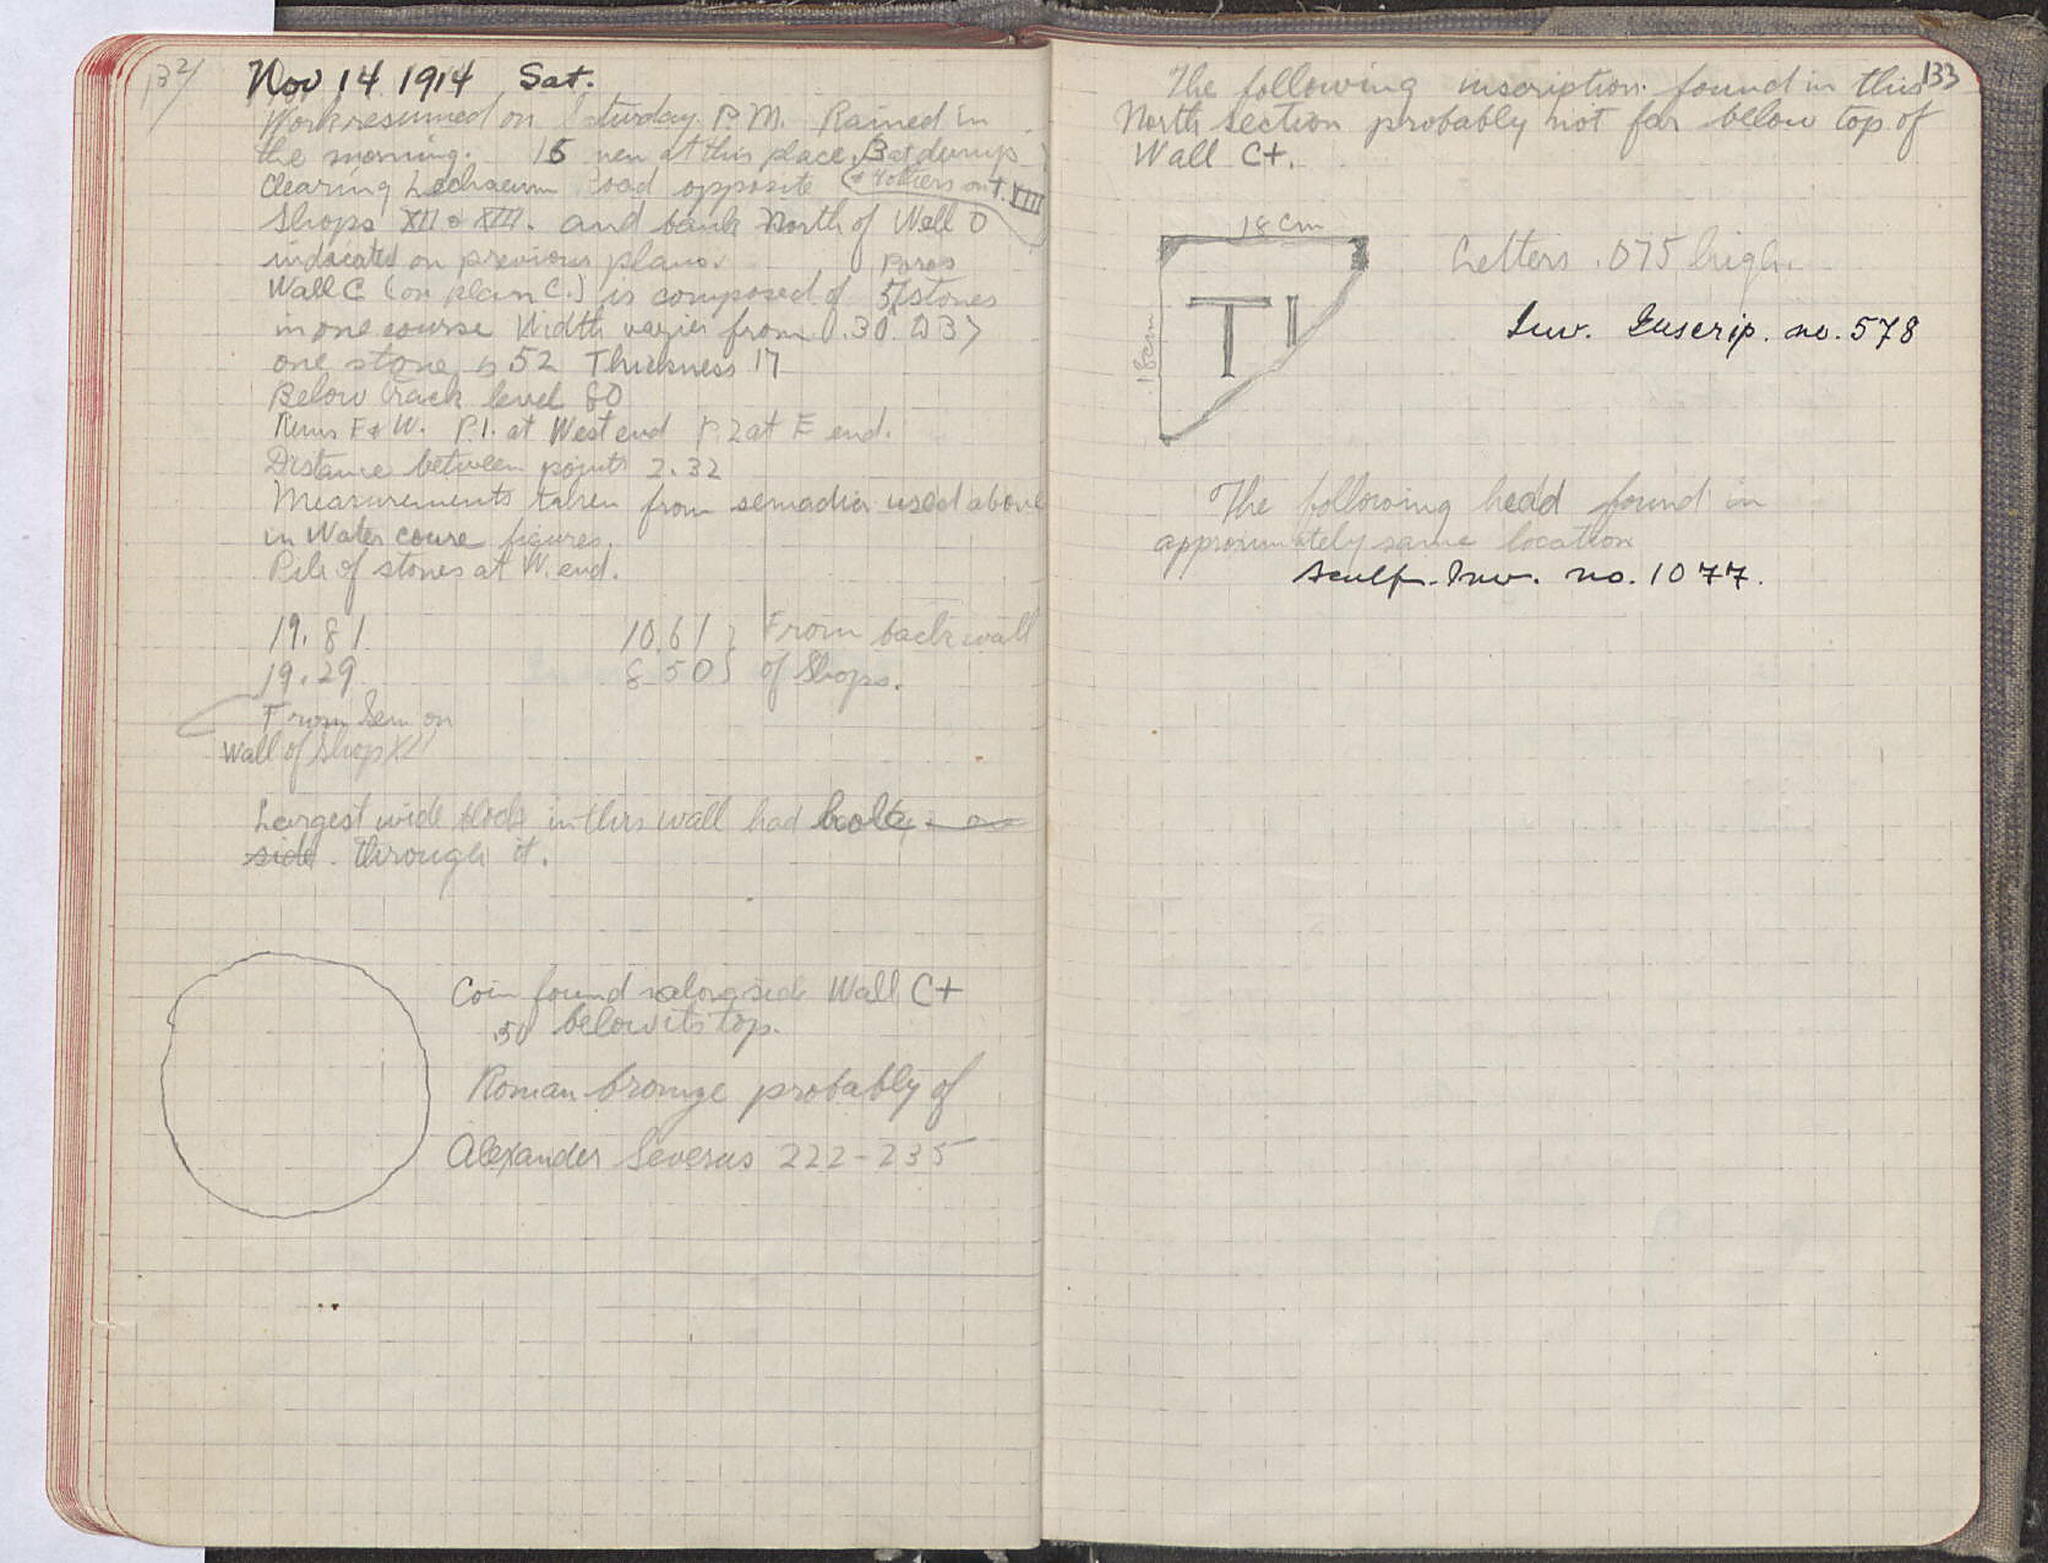 132
Nov 14 1914 Sat.
Work resumed on Saturday P.M. Rained in
the morning. 15 men at this place, 3 at dump
Clearing Lechaeum Road opposite (+ 4 others on T. VIII
Shops XII & XIII. and bank North of Wall D
indicated on previous plans.
Poros
Wall C (on plan C.) is composed of 5 stones
in one course Width varies from 0.30 to 37
one stone is 52 Thickness 17
Below track level 80
Runs E & W. P.1. at West end P.2 at E end.
Distance between points 2.32
Measurements taken from semadia used above
in Water course figures.
Pile of stones at W. end.
19.81 10.61 } From back wall
19.29 8.50 } of Shops.
From Sem on
Wall of Shop XII
Largest wide block in this wall had hole
side through it.
Coin found alongside Wall C+
.50 below its top.
Roman bronze probably of
Alexander Severus 222-235
133
The following inscription found in this
North section probably not far below top of
Wall C+.
18 cm
18cm
TI
Letters .075 high.
Inv. Inscrip. no. 578
The following head found in
approximately same location
Sculp. Inv. no. 1077.